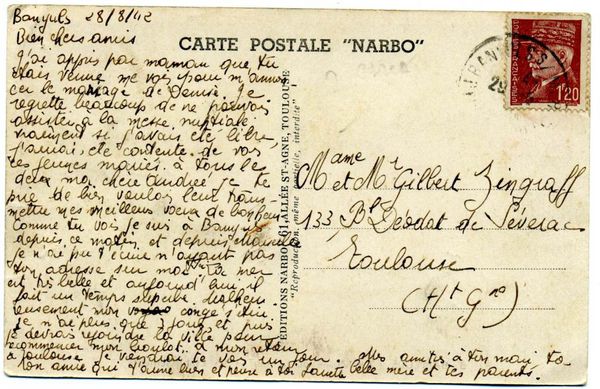 Banyuls 28/8/42
Bien chers amis
J'ai appris par maman que tu
étais venue me voir pour m'annon
cer le mariage de Denise. Je
regrette beaucoup de ne pouvoir
assister à la messe nuptiale
vraiment si j'avais été libre,
j'aurais été contente de voir
les jeunes mariés à tous les
deux ma chère Andrée je te
prie de bien vouloir leur trans-
mettre mes meilleurs voeux de bonheur
Comme tu vois je suis à Banyuls
depuis ce matin et depuis Marseille
je n'ai pu t'écrire n'ayant pas
ton adresse sur moi. La mer
est très belle et aujourd'hui il
fait un temps superbe. Malheu
reusement mon congé s'étire
je n'ai plus que 3 jours et puis
je devrai rejoindre la ville pour
recommencer mon boulot. à mon retour
à Toulouse je viendrai te voir un jour. Mes amitiés à ton mari, ta
belle mère et tes parents.
ton amie qui t'aime bien et pense à toi
CARTE POSTALE "NARBO"
EDITIONS NARBO, 61, ALLÉE ST-AGNE, TOULOUSE
"Reproduction, même partielle, interdite"
1f20
29
Mame et Mr Gilbert Zingraff
133 Bd Déodat de Séverac
Toulouse
(Hte Gne)